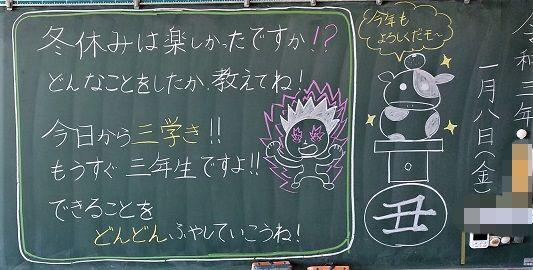 冬休みは楽しかったですか!?
どんなことをしたか、教えてね!
今日から三学き!!
もうすぐ三年生ですよ!!
できることを
どんどんふやしていこうね!
今年も
よろしくだモ~
丑
令和三年
一月八日(金)